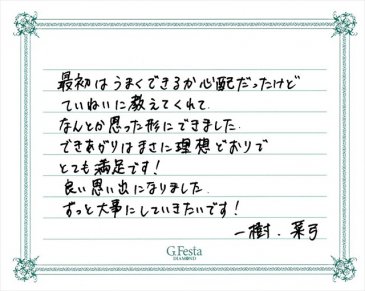 最初はうまくできるか心配だったけど
ていねいに教えてくれて
なんとか思った形にできました.
できあがりはまさに理想どおりで
とても満足です!
良い思い出になりました.
ずっと大事にしていきたいです!
一樹. 菜弓
G.Festa
DIAMOND